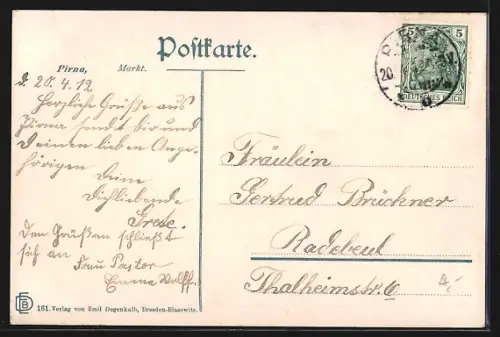 Postkarte.
Pirna, Markt.
d. 20.4.12
Herzliche Grüße aus
Pirna sendet Dir und
Deinen lieben Ange-
hörigen Deine
Dichliebende
Grete.
Den Grüßen schließt
sich an
Frau Pastor
Emma Wolff.
161. Verlag von Emil Degenkolb, Dresden-Blasewitz.
5
DEUTSCHES REICH
20.
Fräulein
Gertrud Brückner
Radebeul
Thalheimstr. 6
4,-